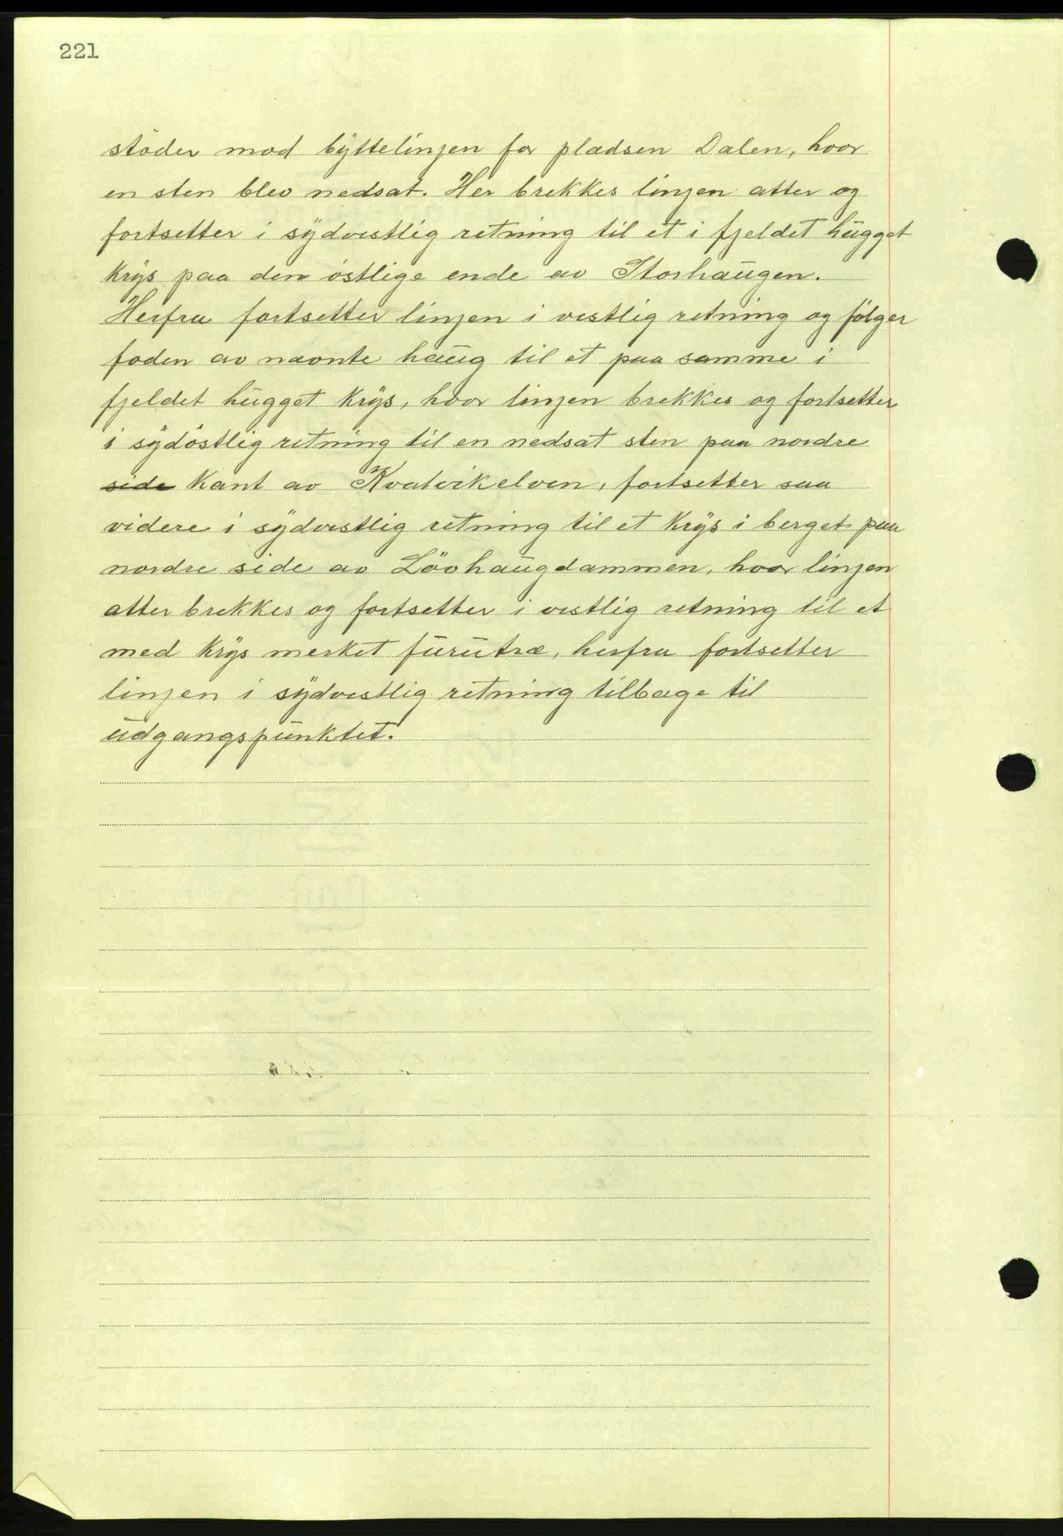 221
stöder mod byttelinjen for pladsen Dalen, hvor
en sten blev nedsat. Her brekkes linjen atter og
fortsetter i sydvestlig retning til et i fjeldet hugget
krys paa den östlige ende av Storhaugen.
Herfra fortsetter linjen i vestlig retning og fölger
foden av nævnte haug til et paa samme i
fjeldet hugget krys, hvor linjen brekkes og fortsetter
i sydöstlig retning til en nedsat sten paa nordre
side kant av Kvalvikelven, fortsetter saa
videre i sydvestlig retning til et krys i berget paa
nordre side av Lövhaugdammen, hvor linjen
atter brekkes og fortsetter i vestlig retning til et
med krys merket furutræ, herfra fortsetter
linjen i sydvestlig retning tilbage til
udgangspunktet.